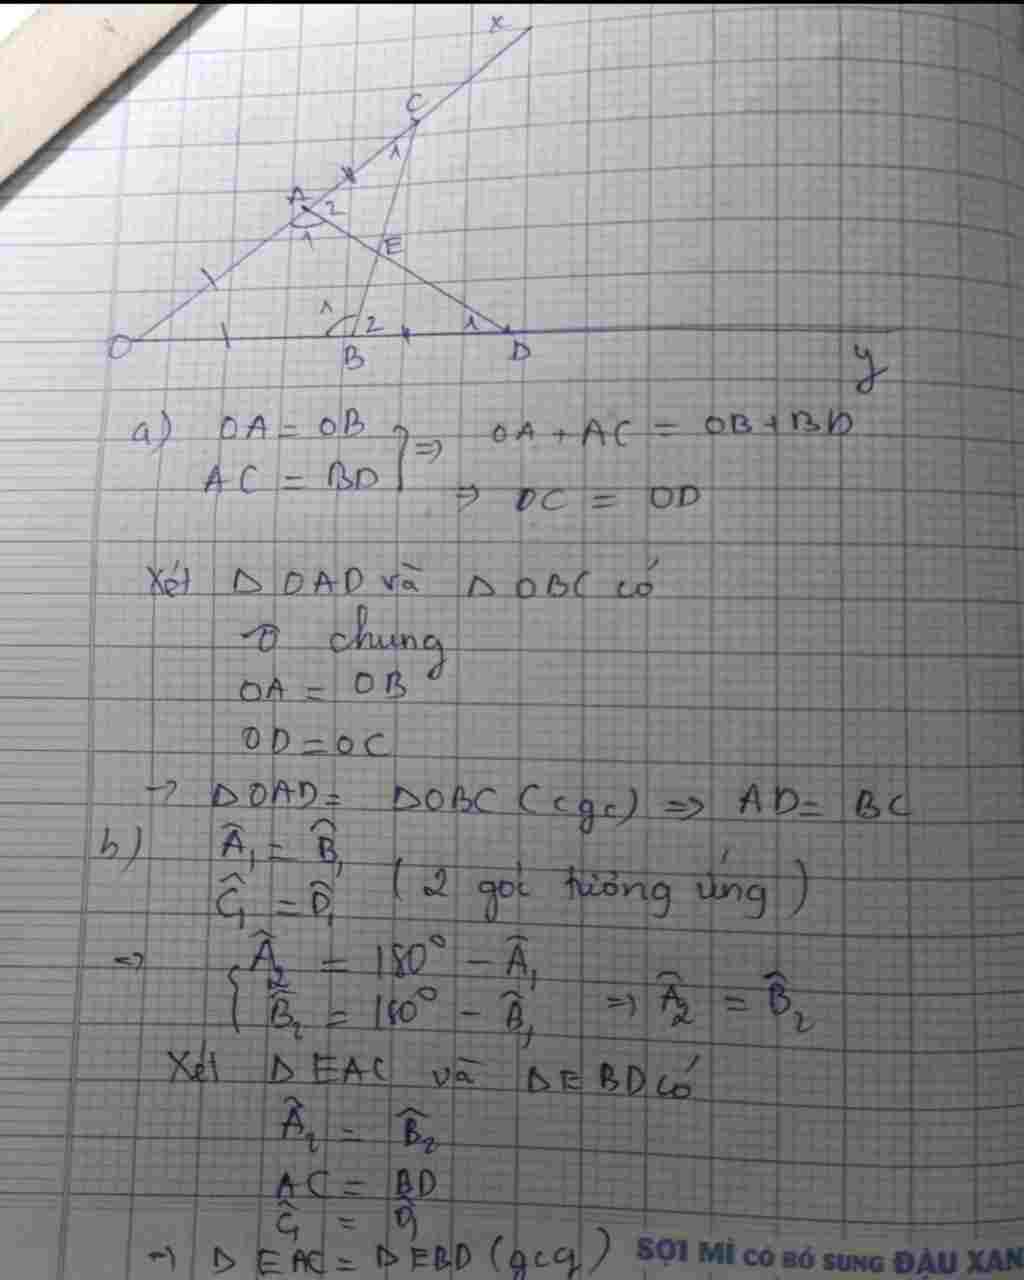 x
C
1
A
2
1
E
1
2
1
O
B
D
y
a) OA = OB
AC = BD
} => OA + AC = OB + BD
=> OC = OD
Xét Δ OAD và Δ OBC có
Ô chung
OA = OB
OD = OC
-> ΔOAD = ΔOBC (cgc) => AD = BC
b) Â₁ = B̂₁
Ĉ₁ = D̂₁ (2 góc tương ứng)
=> { Â₂ = 180° - Â₁
B̂₂ = 180° - B̂₁ => Â₂ = B̂₂
Xét Δ EAC và Δ EBD có
Â₂ = B̂₂
AC = BD
Ĉ₁ = D̂₁
-> Δ EAC = Δ EBD (gcg)
SỢI MÌ CÓ BỔ SUNG ĐẬU XAN